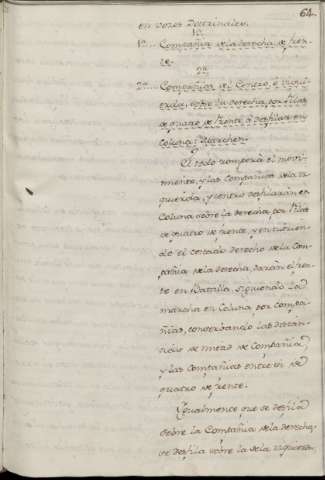 64.
en vozes Doctrinales.
1ª
1ª... Compañia de la derecha de fren-
te.
2ª
2ª... Compañias del Centro, é izqui-
erda, sobre la derecha, por filas
de quatro de frente á desfilar en
Coluna: Marchen.
El todo romperá el movi-
miento, y las Compañias de la iz
quierda, y centro desfilarán en
Coluna sobre la derecha, por filas
de quatro de frente, y en
do el costado derecho de la Com-
pañia de la derecha, darán el fren-
te en Batalla, siguiendo la
marcha en Coluna por compa-
ñias, conservando las distan-
cias de mitad de Compañia
y las Compañias entre sí de
quatro de frente.
Igualmente que se desfila
sobre la Compañia de la derecha,
se desfila sobre la de la izquierda,